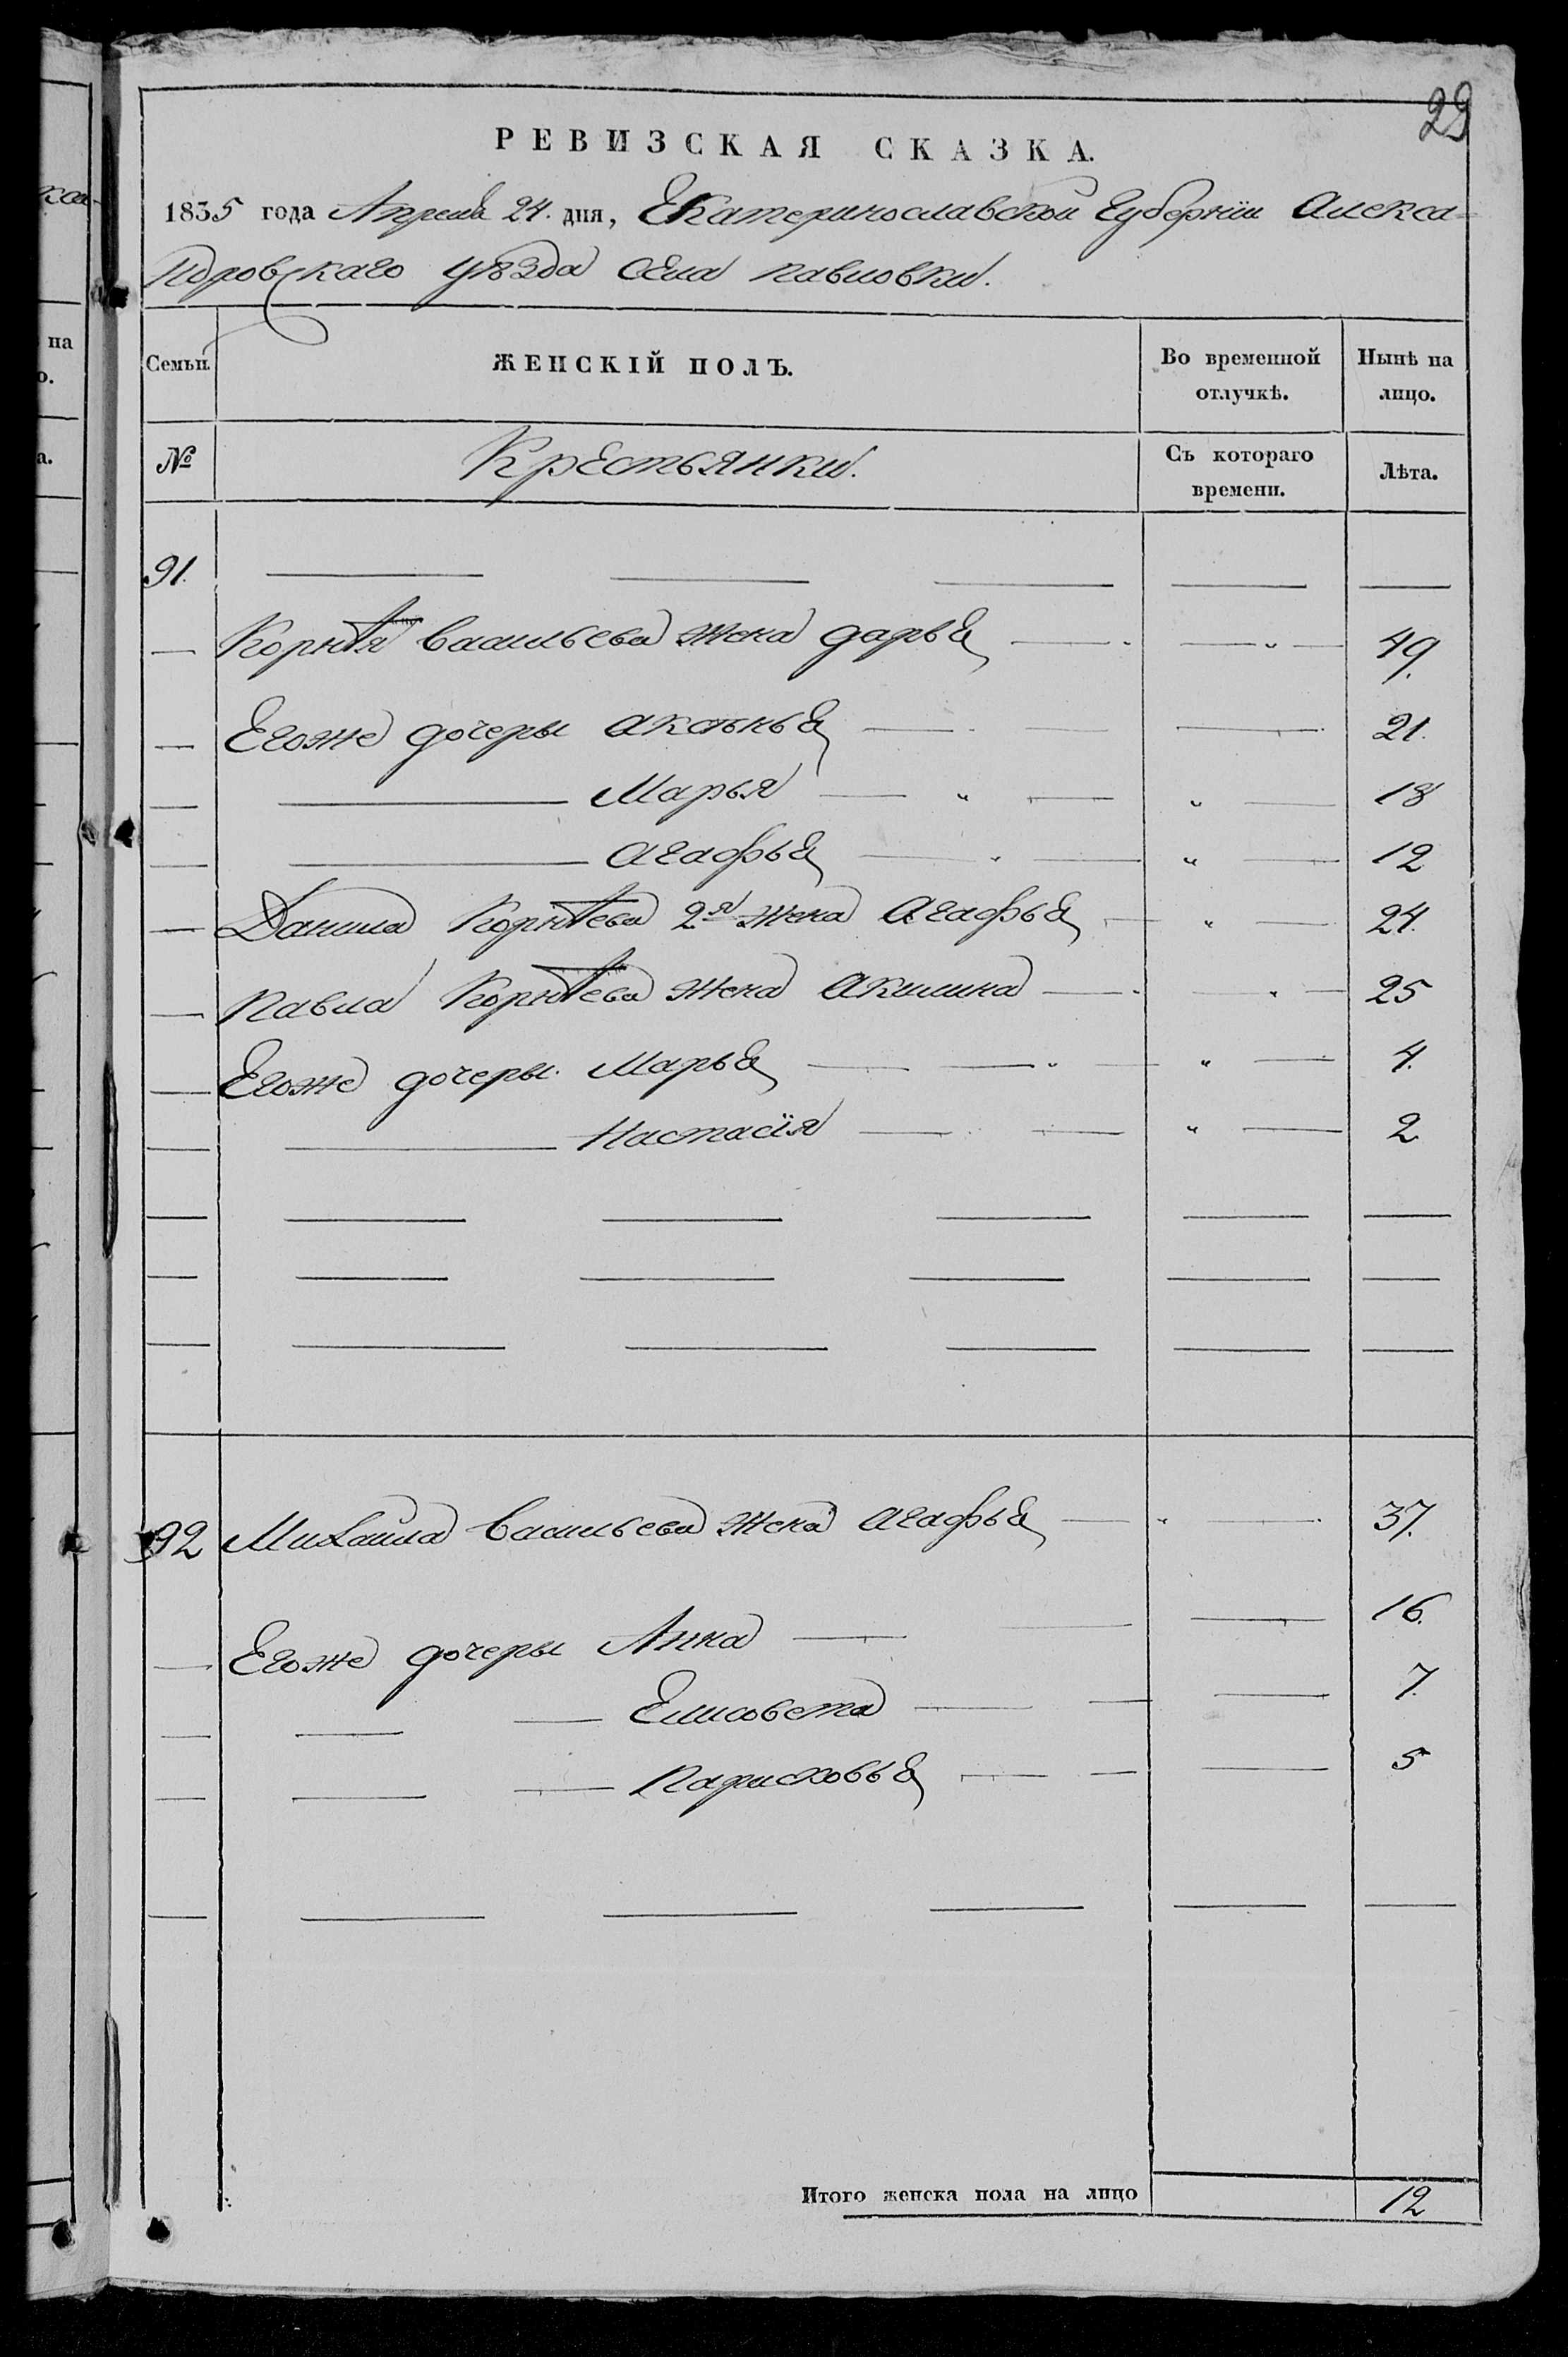 29
РЕВИЗСКАЯ СКАЗКА.
1835 года Апреля 24. дня, Екатеринославской Губернїи Алекса=
ндровскаго уѣзда села павловки.
Семьи. ЖЕНСКІЙ ПОЛЪ. Во временной отлучкѣ. Нынѣ на лицо.
№ Крестьянки. Съ котораго времени. Лѣта.
91.
Корнѣя Васильева жена дарья 49.
Егоже дочеры аксинья 21.
Марья 18
агафья 12
Данила Корнѣева 2я жена Агафья 24.
Павла Корнѣева жена Акилина 25
Егоже дочеры Марья 4.
Настасїя 2
92 Михайла Васильева жена агафья 37.
Егоже дочеры Анна 16.
Елисовета 7.
Парасковья 5
Итого женска пола на лицо 12